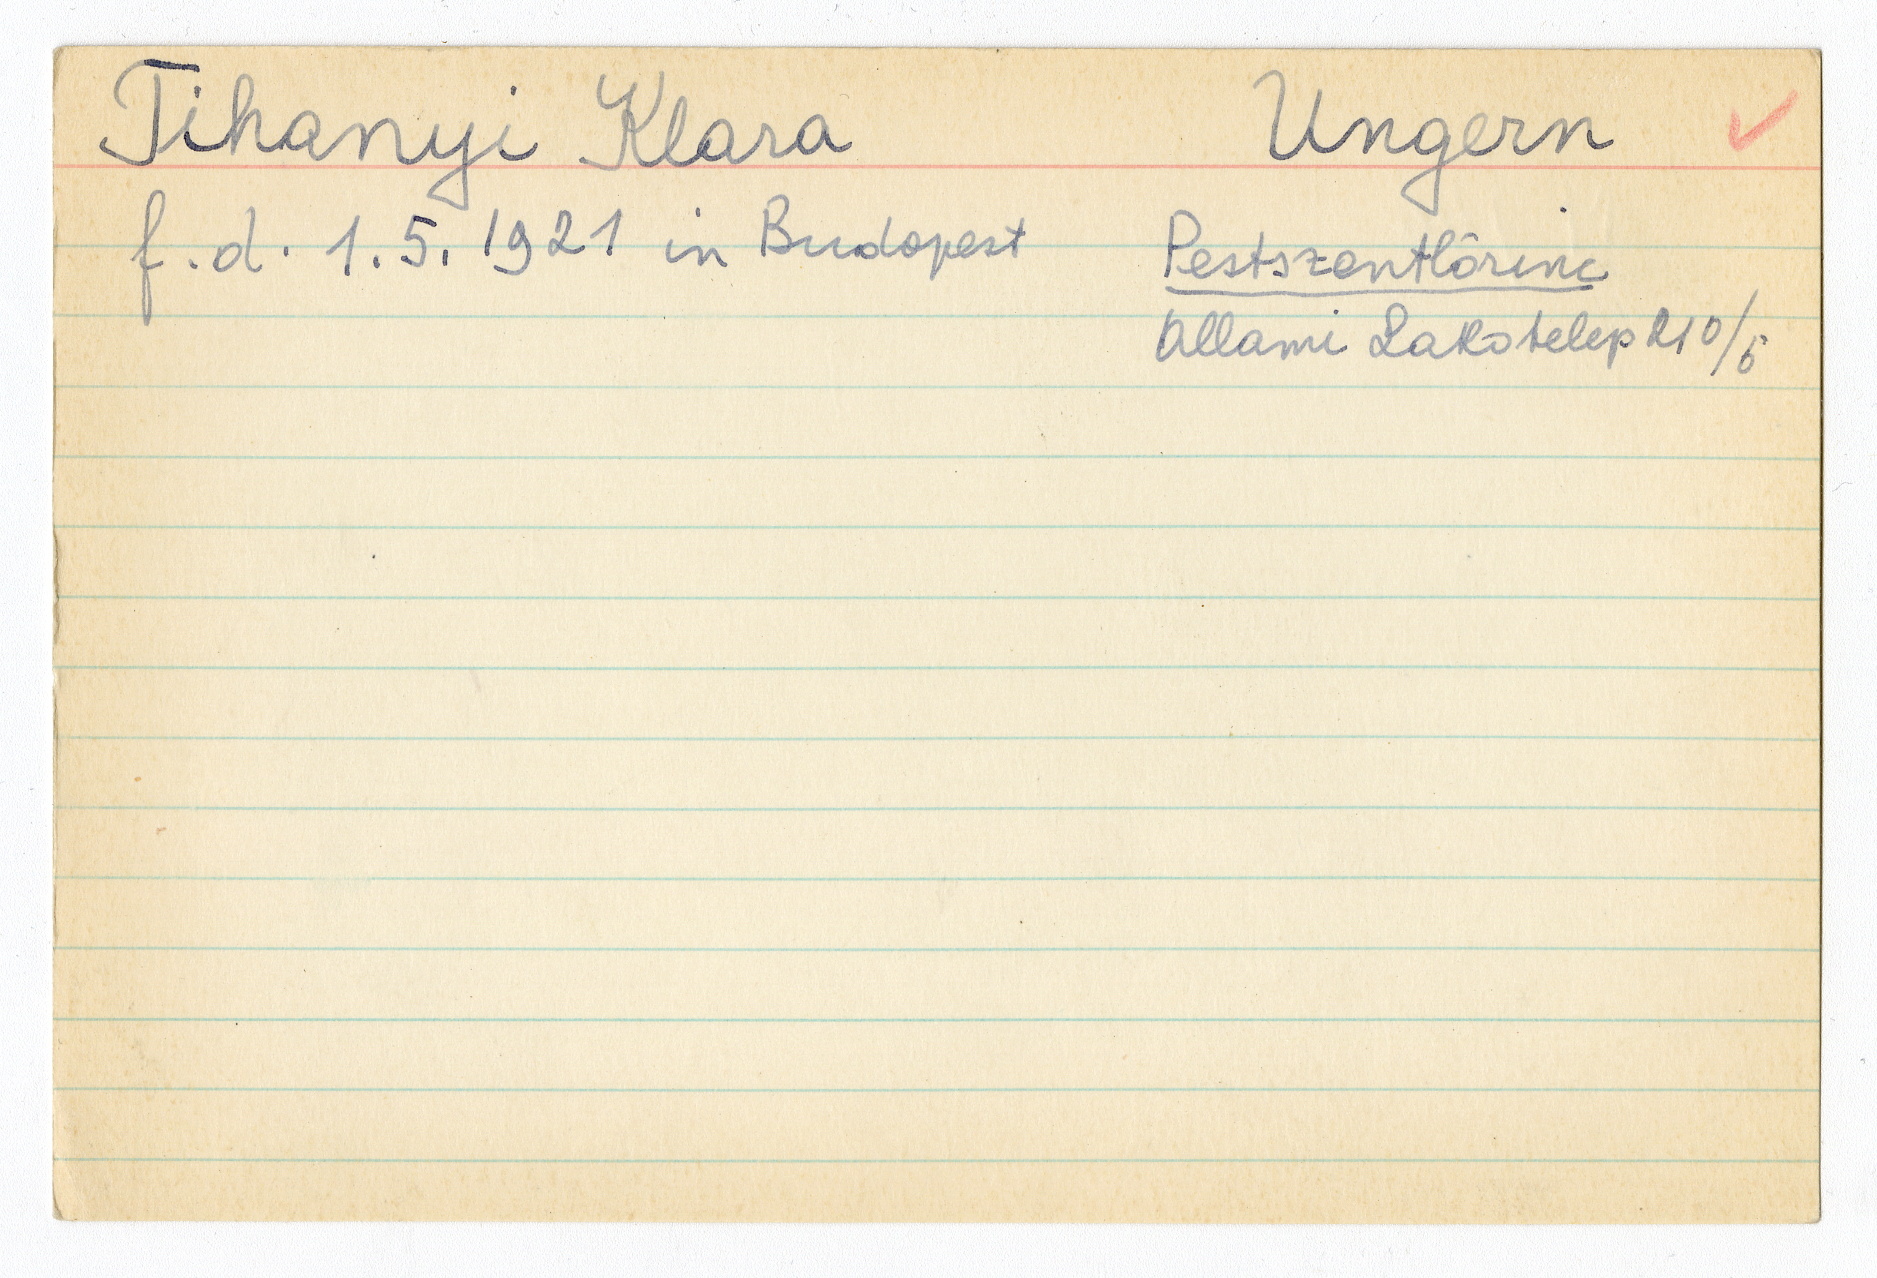 Tihanyi Klara Ungern ✓
f.d. 1.5. 1921 in Budapest
Pestszentlôrinc
Allami Lakotelep 210/5